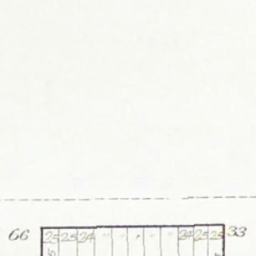 66 25 25 24 " " " " " 24 25 25 33